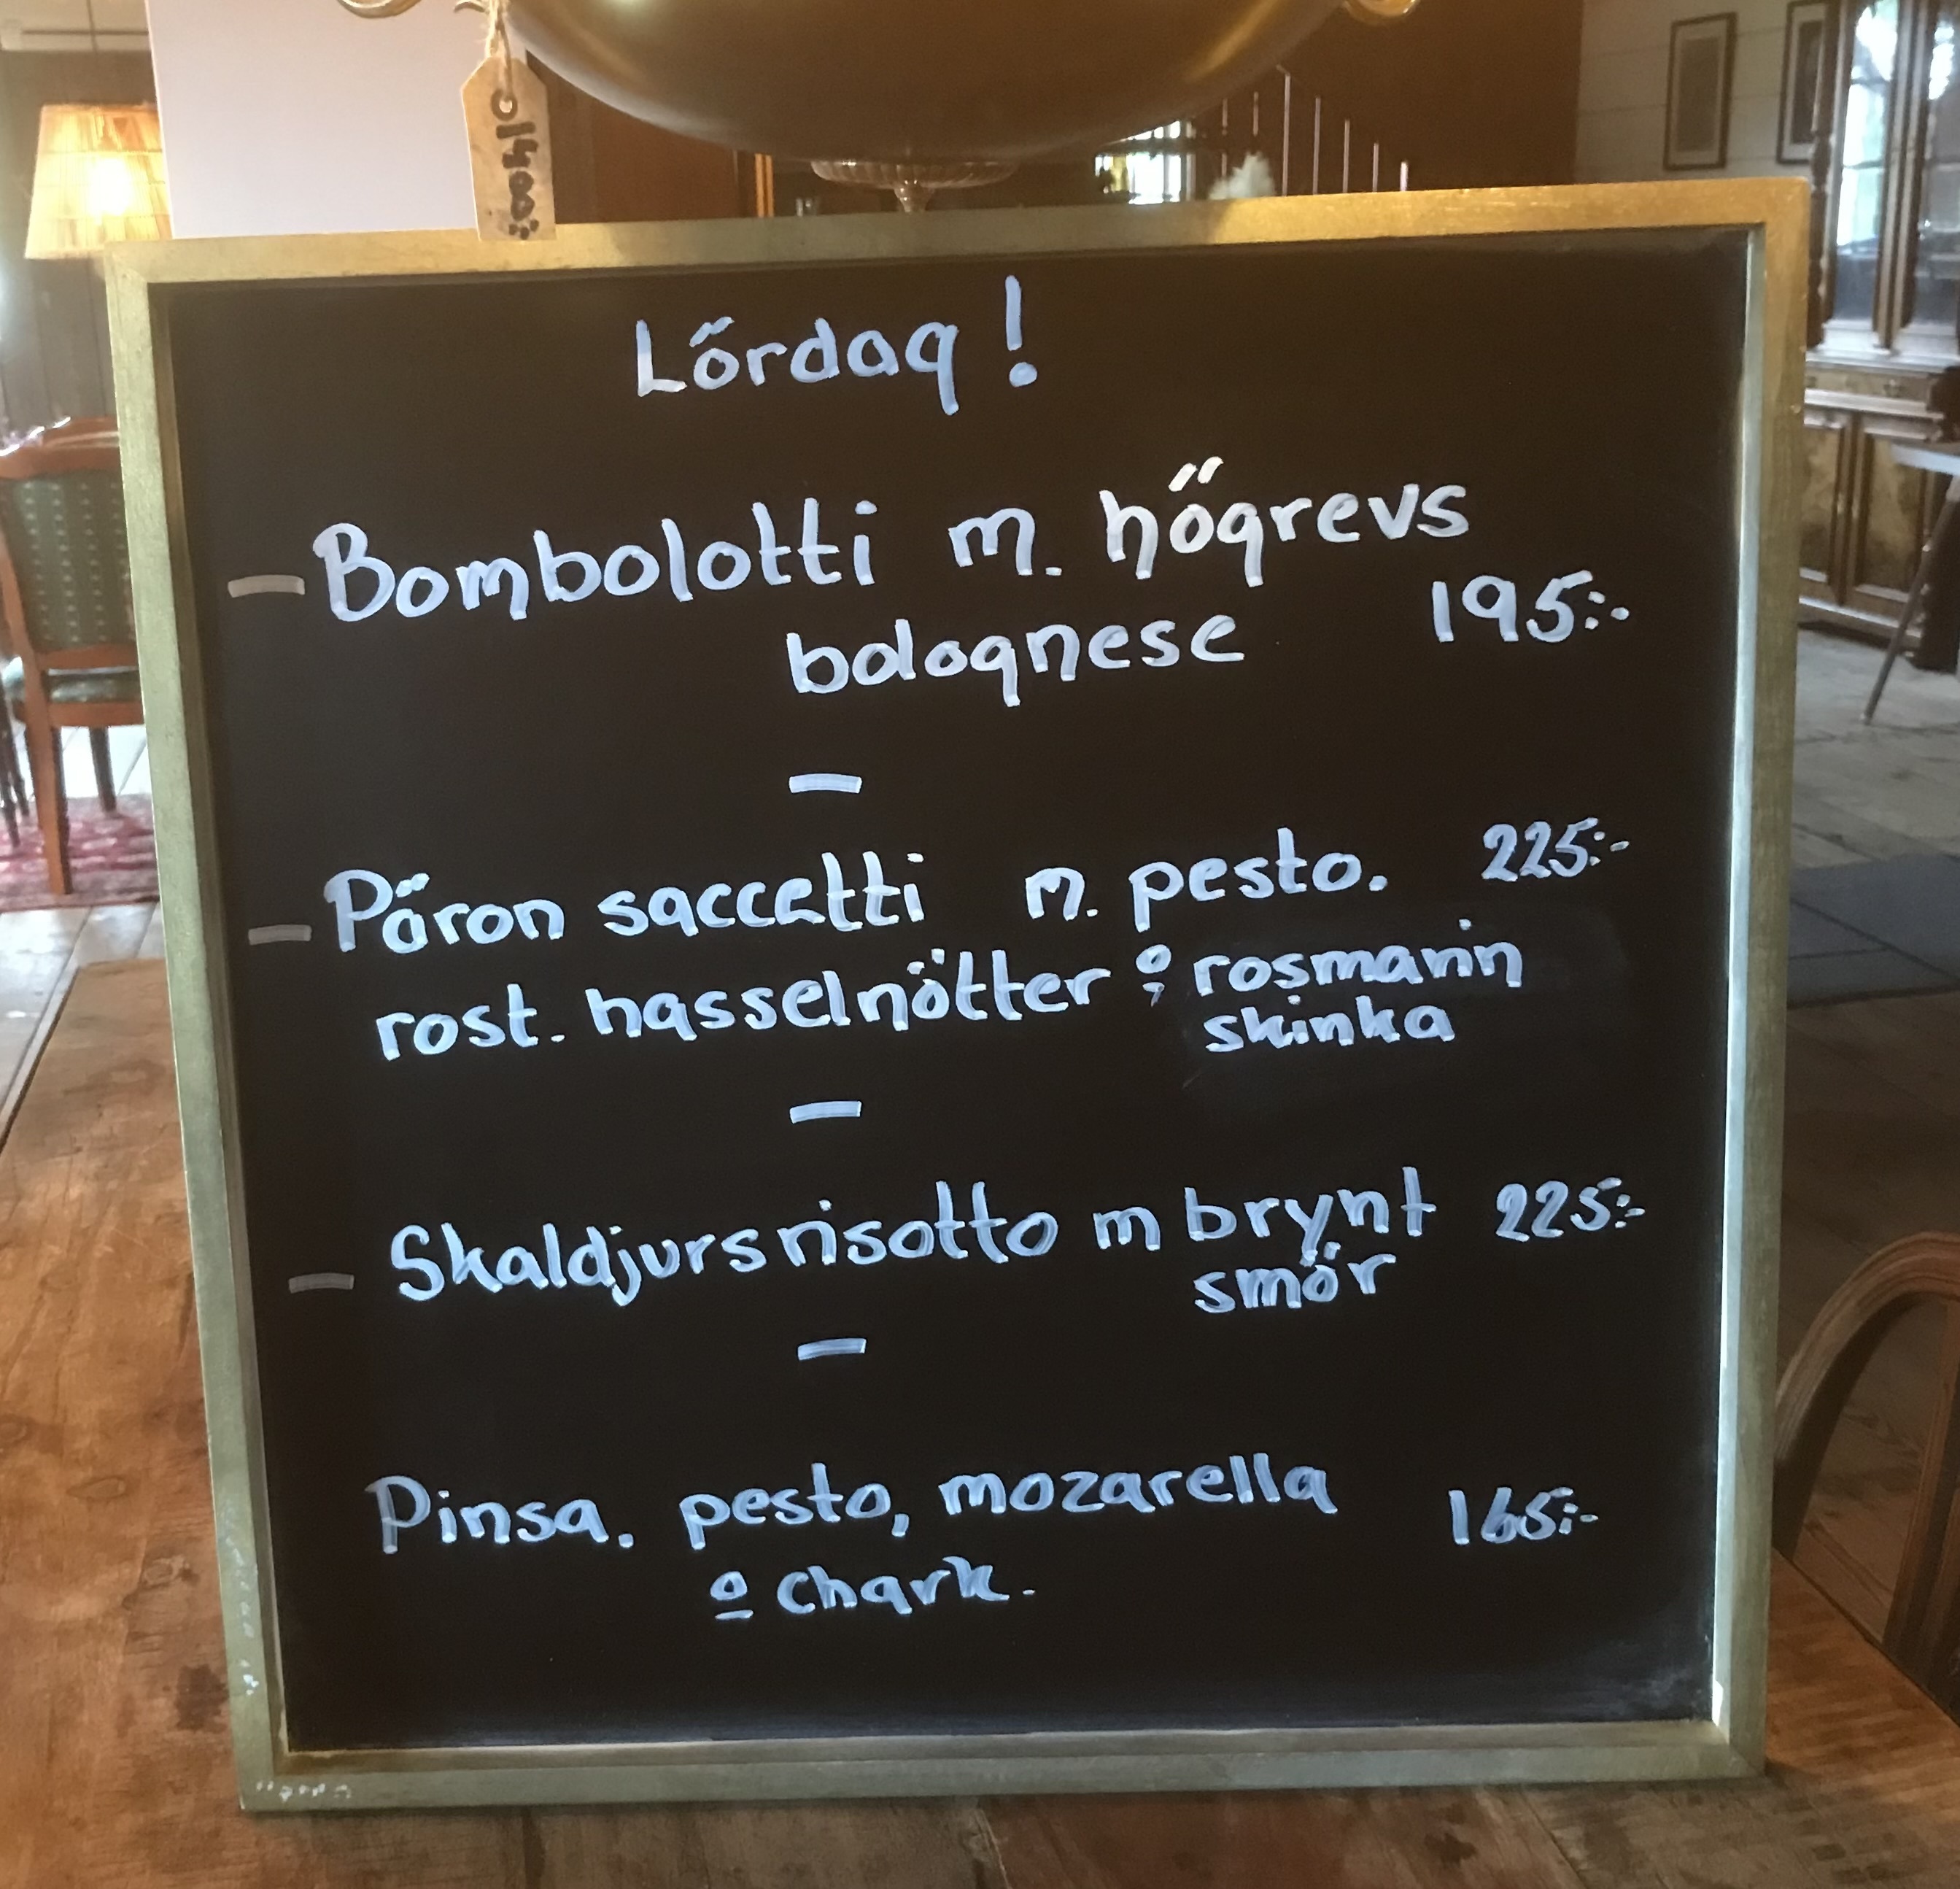 Lördag!
- Bombolotti m. högrevs
bolognese 195:-
-
- Päron saccetti m. pesto. 225:-
rost. hasselnötter o, rosmarin
skinka
-
- Skaldjursrisotto m brynt 225:-
smör
-
Pinsa. pesto, mozarella 165:-
o chark.